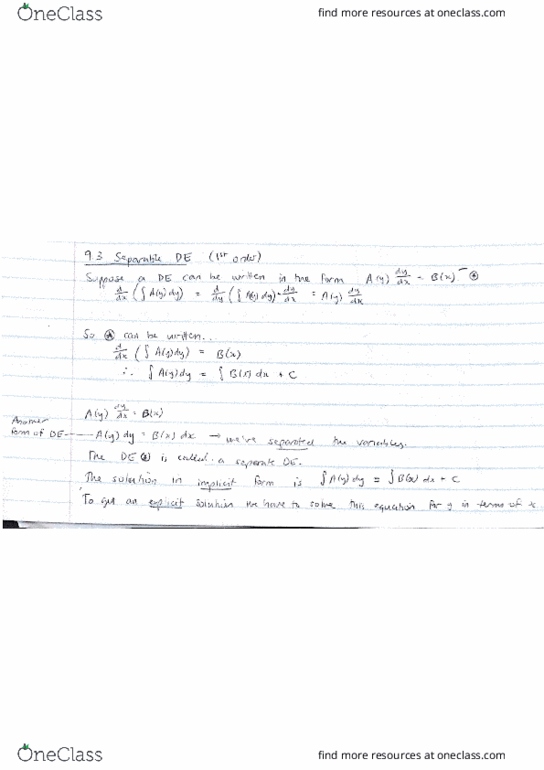 OneClass find more resources at oneclass.com
9.3 Separable DE (1st order)
Suppose a DE can be written in the form A(y) dy/dx = B(x) - ⊛
d/dx (∫ A(y) dy) = d/dy (∫ A(y) dy) · dy/dx = A(y) dy/dx
So ⊛ can be written...
d/dx (∫ A(y) dy) = B(x)
∴ ∫ A(y) dy = ∫ B(x) dx + C
A(y) dy/dx = B(x)
Another
form of DE ---- A(y) dy = B(x) dx → we've separated the variables.
The DE ⊛ is called a separate DE.
The solution in implicit form is ∫ A(y) dy = ∫ B(x) dx + C
To get an explicit solution we have to solve this equation for y in terms of x
OneClass find more resources at oneclass.com